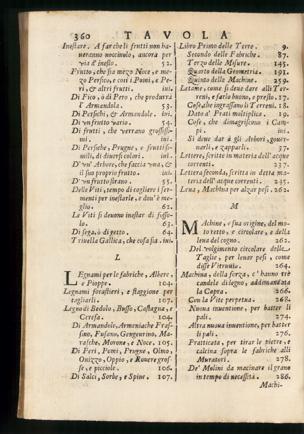 360 TAVOLA
Inestare. A far che li frutti non ha-
ueranno nocciuolo, ancora per
via d'inesto. 52.
Frutto, che sia mezo Noce, e me-
zo Persico, e così i Pomi, e Pe-
ri, & altri frutti. ini.
Di Fico, ò di Pero, che produrrà
l'Armandola. 53.
Di Persichi, & Armandole. ini.
D'un frutto vario. 54.
Di frutti, che verranno grossissi-
mi. ini.
Di Persiche, Prugne, e frutti si-
mili, di diuersi colori. ini.
D'un' Arbore, che faccia vna, &
il suo proprio frutto. ini.
D'vn frutto strano. 55.
Delle Viti, tempo di tagliere i ser-
menti per inestarle, e don' è me-
glio. 62.
Le Viti si deuono inestar di fesso-
lo. 63.
Di sega, ò di getto. 64.
Triuella Gallica, che cosa sia. ini.
L
LEgnami per le fabriche, Albere,
e Pioppe. 104.
Legnami forastieri, e staggione per
tagliarli. 107.
Legno di Bedolo, Busso, Castagna, e
Ceresa. 104.
Di Armandole, Armeniache Fras-
sino, Fusano, Gengeurino, Ma-
rasche, Morone, e Noce. 105.
Di Peri, Pomi, Prugne, Olmo,
Ouizzo, Oppio, e Rouere gros-
se, e picciole. 106.
Di Salci, Sorbe, e Spine. 107.
Libro Primo delle Terre. 9.
Secondo delle Fabriche. 87.
Terzo delle Misure. 145.
Quarto della Geometria. 191.
Quinto delle Machine. 259.
Letame, come si deue dare alli Ter-
reni, e farlo buono, e presto. 17.
Cose, che ingrassano li Terreni. 18.
Dato a' Prati moltiplica. 19.
Cose, che domagriscono i Cam-
pi. ini.
Si deue dar à gli Arbori, gouer-
narli, e zapparli. 37.
Lettere, scritte in materia dell'acque
correnti. 237.
Lettera seconda, scritta in detta mate-
ria dell'acque correnti. 235.
Leua, Machina per alzar pesi. 262.
M
MAchine, e sua origine, del mo-
to retto, e circolare, e della
lena del cogno. 262.
Del volgimento circolare delle
Taglie, per leuar pesi, come
disse Vitruuio. 264.
Machina, della forza, c'hanno trè
candele di legno, addimandata
la Capra. 266.
Con la Vite perpetua. 268.
Nuoua inuentione, per batter li
pali. 274.
Altra nuoua inuentione, per batter
li pali. 276.
Pratticata, per tirar le pietre, e
calcina sopra le fabriche alli
Muratori. 278.
De' Molini da macinare il grano
in tempo di necessità. 286.
Machi-